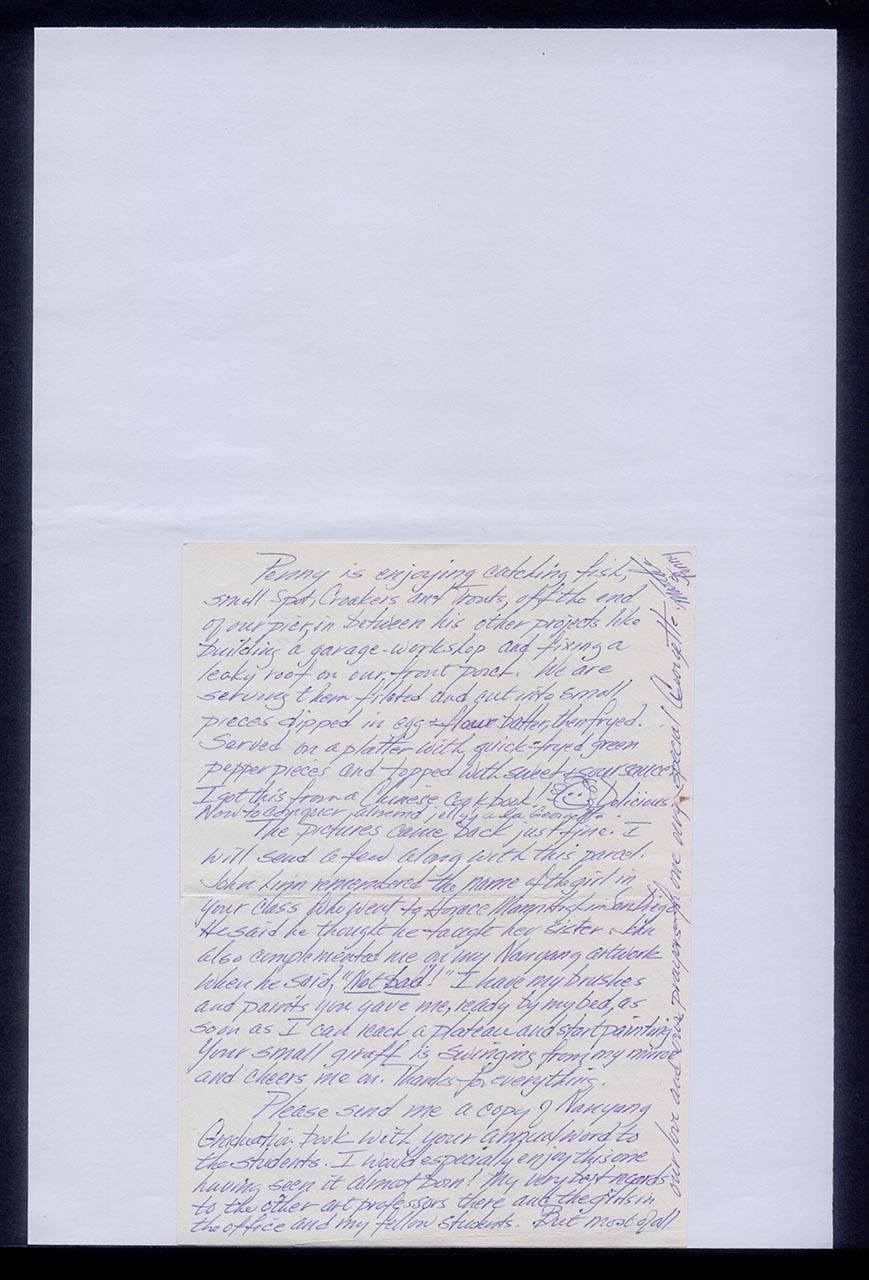 Penny is enjoying catching fish,
small Spot, Croakers and Trouts, off the end
of our pier, in between his other projects like
building a garage-workshop and fixing a
leaky roof on our front porch. We are
serving them fileted and cut into small
pieces dipped in egg + flour batter, then fryed.
Served on a platter with quick-fryed green
pepper pieces and topped with sweet + sour sauce.
I got this from a Chinese cook book! Delicious!
Now to conquer almond jelly a la Georgette.
The pictures came back just fine. I
will send a few along with this parcel.
John Linn remembered the name of the girl in
your class who went to Horace Mann in San Diego
He said he thought he taught her sister. John
also complemented me on my Nanyang artwork
when he said, "Not bad!" I have my brushes
and paints you gave me, ready by my bed, as
soon as I can reach a plateau and start painting
Your small giraff is swinging from my mirror
and cheers me on. Thanks for everything.
Please send me a copy of Nanyang
Graduation book with your annual word to
the students. I would especially enjoy this one
having seen it almost born! My very best regards
to the other art professors there and the girls in
the office and my fellow students. But most of all
our love and prayers for one very special Georgette